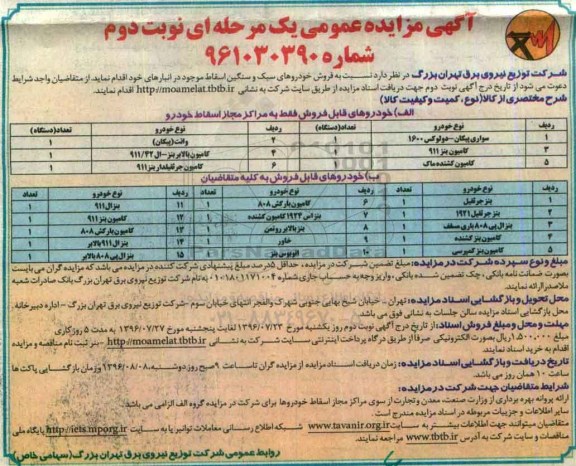 آگهی مزایده عمومی یک مرحله ای نوبت دوم
شماره ۹۶۱۰۳۰۳۹۰
شرکت توزیع نیروی برق تهران بزرگ در نظر دارد نسبت به فروش خودروهای سبک و سنگین اسقاط موجود در انبارهای خود اقدام نماید. از متقاضیان واجد شرایط
دعوت می شود از تاریخ درج آگهی نوبت دوم جهت دریافت اسناد مزایده از طریق سایت شرکت به نشانی http://moamelat.tbtb.ir اقدام نمایند.
شرح مختصری از کالا (نوع، کمیت و کیفیت کالا)
الف) خودروهای قابل فروش فقط به مراکز مجاز اسقاط خودرو
ردیف نوع خودرو تعداد (دستگاه) ردیف نوع خودرو تعداد (دستگاه)
۱ سواری پیکان-دولوکس ۱۶۰۰ ۱ ۲ وانت (پیکان) ۱
۳ کامیون بنز ۹۱۱ ۱ ۴ کامیون بالابر بنز-ال ۹۱۱/۴۲ ۱
۵ کامیون کشنده ماک ۱ ۶ کامیون جرثقیلدار بنز ۹۱۱ ۱
ب) خودروهای قابل فروش به کلیه متقاضیان
ردیف نوع خودرو تعداد ردیف نوع خودرو تعداد ردیف نوع خودرو تعداد
۱ بنز جرثقیل ۱ ۶ کامیون بارکش ۸۰۸ ۱ ۱۱ بنز ال ۹۱۱ ۱
۲ بنز جرثقیل ۱۹۲۱ ۱ ۷ بنز اس ۱۹۲۴ کامیون کشنده ۱ ۱۲ کامیون بنز ۹۱۱ ۱
۳ بنز ال پی ۸۰۸ باری مسقف ۱ ۸ بنز بالابر روتمن ۱ ۱۳ کامیون بارکش ۸۰۸ ۱
۴ کامیون بنز کشنده ۱ ۹ خاور ۱ ۱۴ بنز ال ۹۱۱ بالابر ۱
۵ کامیون بنز کمپرسی ۱ ۱۰ اتوبوس بنز ۱ ۱۵ بنز ال پی ۸۰۸ بالابر ۱
مبلغ و نوع سپرده شرکت در مزایده: مبلغ تضمین شرکت در مزایده، حداقل ۵ درصد مبلغ پیشنهادی شرکت کننده در مزایده می باشد که مزایده گران می بایست
بصورت ضمانت نامه بانکی، چک تضمین شده بانکی، واریز وجه به حساب جاری شماره ۰۱۰۱۸۰۱۱۷۱۰۰۴ به نام شرکت توزیع نیروی برق تهران بزرگ بانک صادرات شعبه
ملاصدرا ارائه نمایند.
محل تحویل و بازگشایی اسناد مزایده: تهران - خیابان شیخ بهایی جنوبی شهرک والفجر انتهای خیابان سوم - شرکت توزیع نیروی برق تهران بزرگ - اداره دبیرخانه.
محل بازگشایی اسناد مزایده سالن جلسات به نشانی فوق می باشد.
مهلت و محل و مبلغ فروش اسناد: از تاریخ درج آگهی نوبت دوم روز یکشنبه مورخ ۱۳۹۶/۰۷/۲۳ لغایت پنجشنبه مورخ ۱۳۹۶/۰۷/۲۷ به مدت ۵ روز کاری
مبلغ ۱,۵۰۰,۰۰۰ ریال بصورت الکترونیکی صرفاً از طریق درگاه پرداخت اینترنتی سایت شرکت به نشانی http://moamelat.tbtb.ir - بنر ثبت نام مناقصه و مزایده
اقدام به خرید اسناد نمایند.
تاریخ دریافت و بازگشایی اسناد مزایده: زمان دریافت اسناد مزایده از مزایده گران تا ساعت ۹ صبح روز دوشنبه ۱۳۹۶/۰۸/۰۸ و زمان بازگشایی پاکت ها
ساعت ۱۰ همان روز می باشد.
شرایط متقاضیان جهت شرکت در مزایده:
ارائه پروانه بهره برداری از وزارت صنعت، معدن و تجارت از سوی مراکز مجاز اسقاط خودروها برای شرکت در مزایده گروه الف الزامی می باشد.
سایر اطلاعات و جزییات مربوطه در اسناد مزایده مندرج است.
متقاضیان میتوانند جهت اطلاعات بیشتر به سایت www.tavanir.org.ir شبکه اطلاع رسانی معاملات توانیر یا به سایت http://iets.mporg.ir پایگاه ملی
مناقصات و سایت شرکت به آدرس www.tbtb.ir مراجعه نمایند.
روابط عمومی شرکت توزیع نیروی برق تهران بزرگ (سهامی خاص)